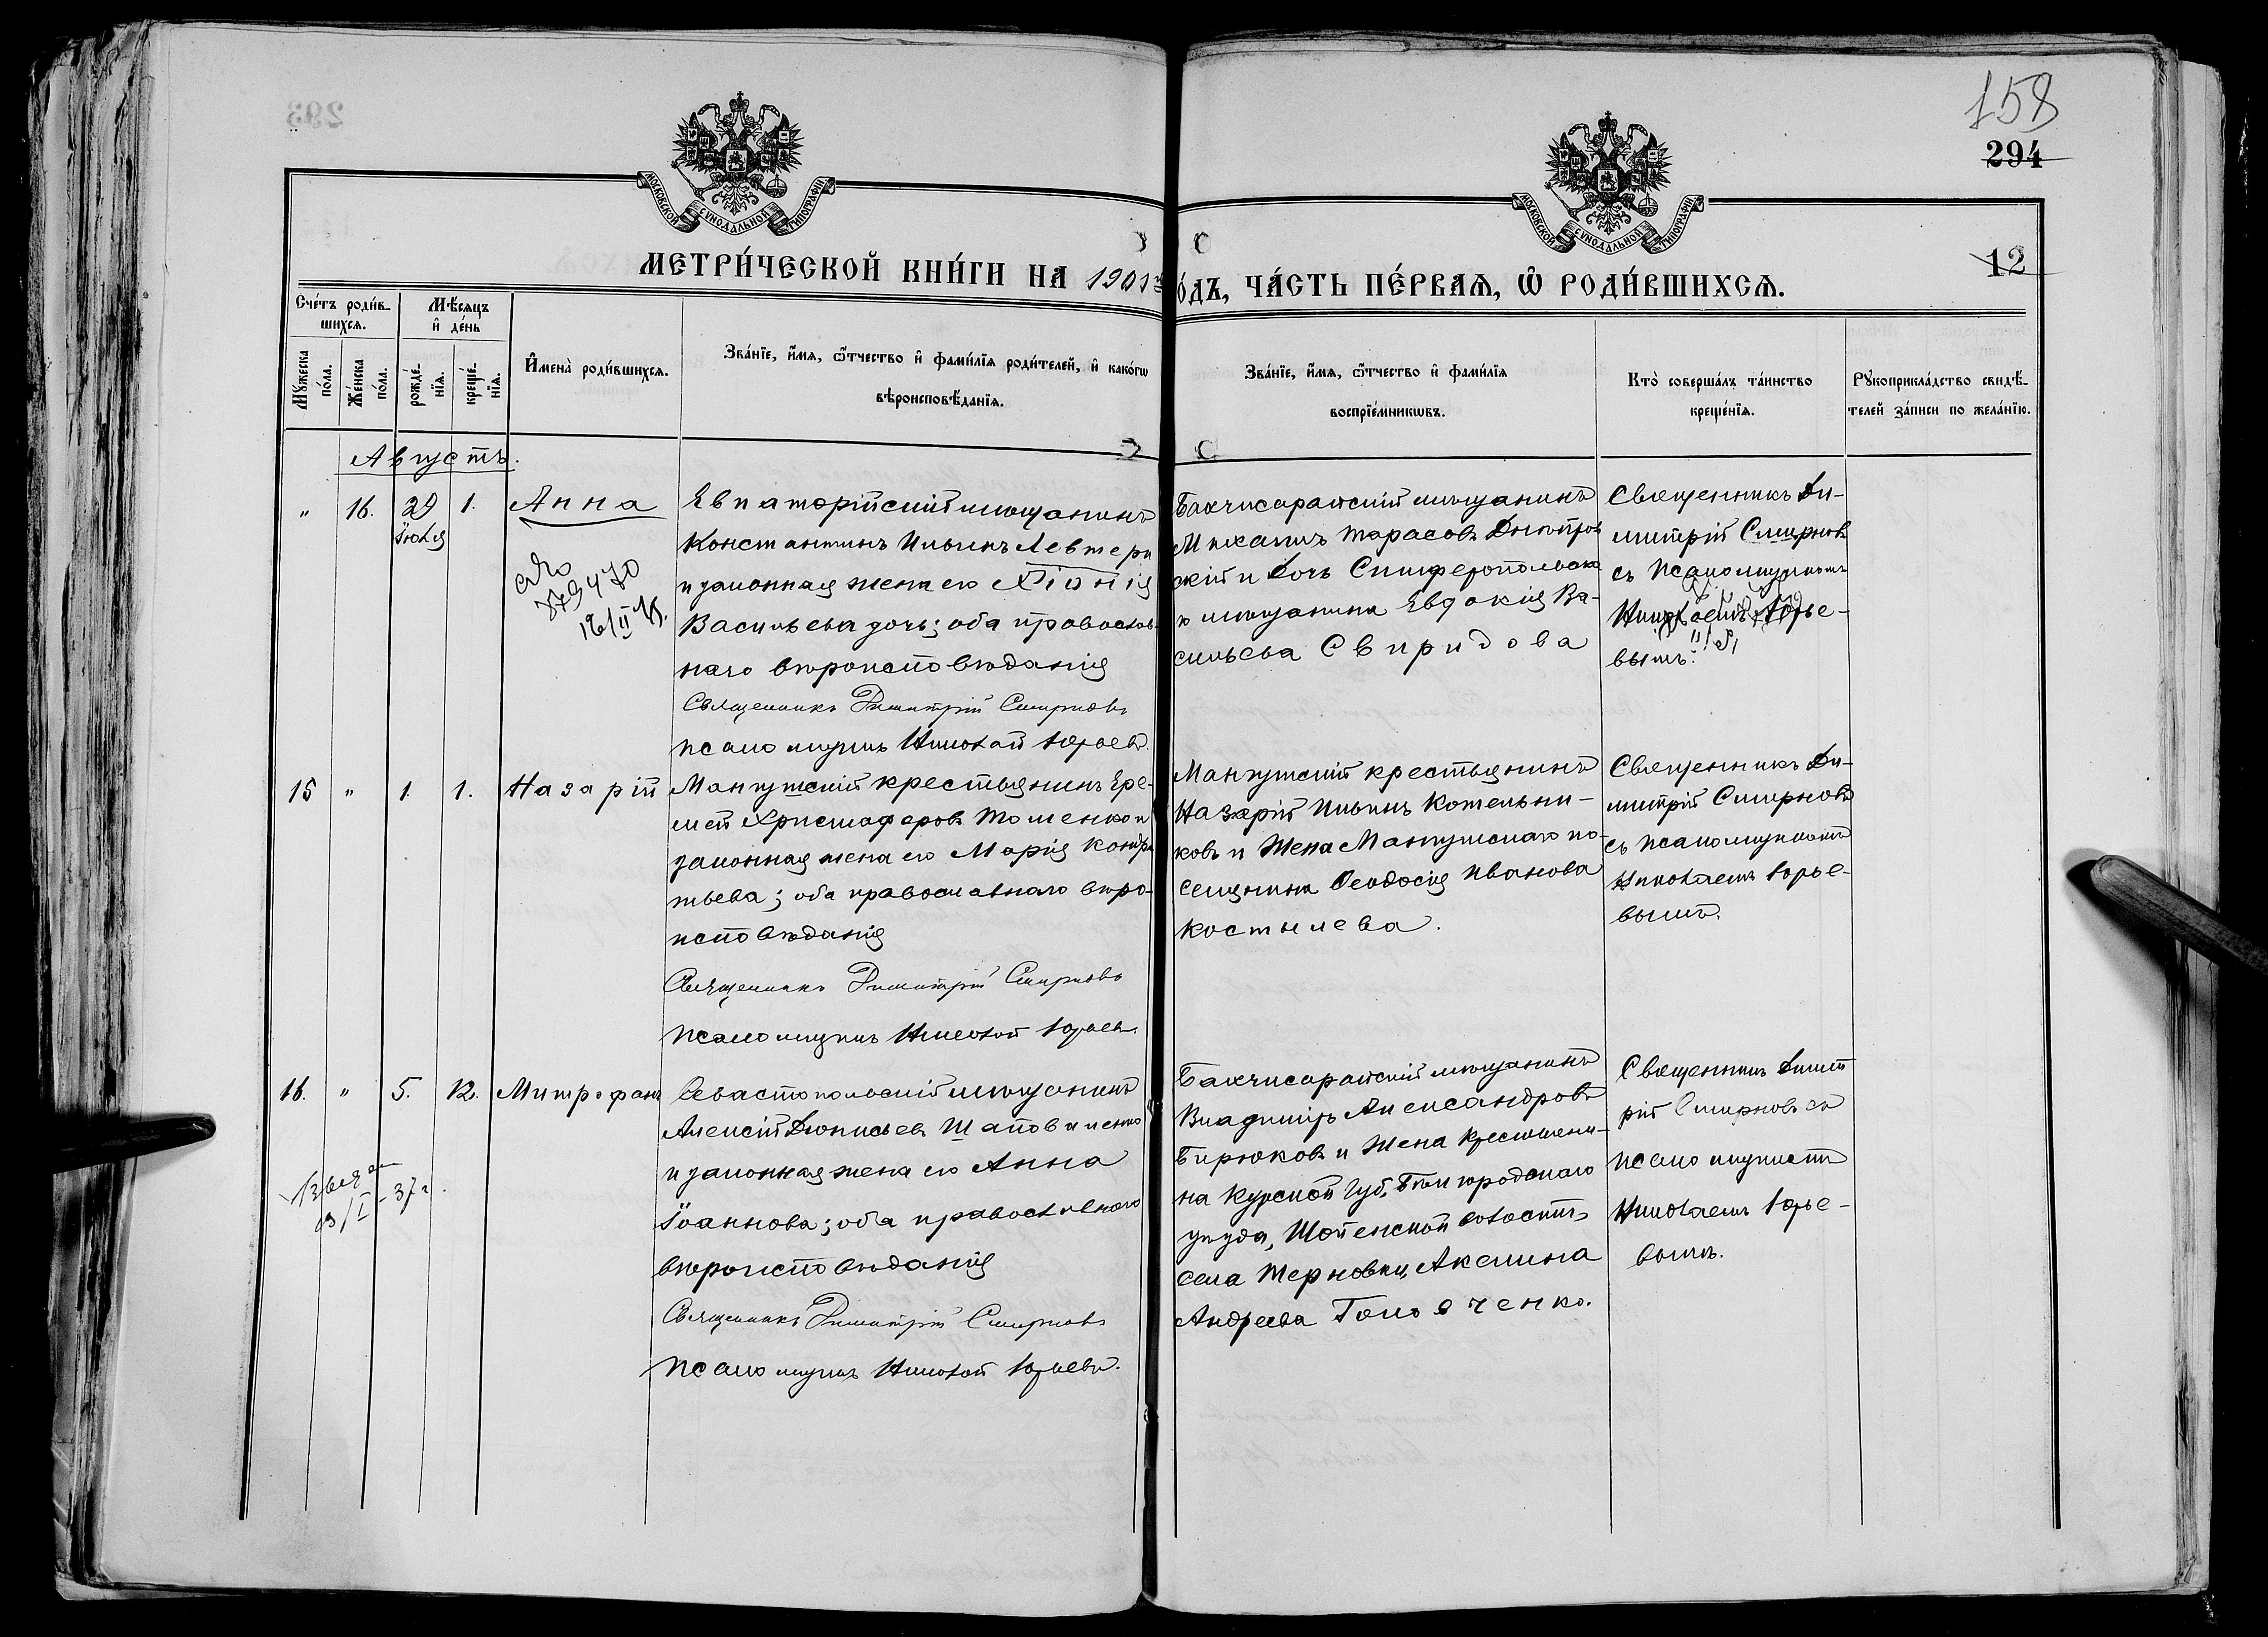 158
294
МОСКОВСКОЙ СУНОДАЛЬНОЙ ТИПОГРАФІИ
МОСКОВСКОЙ СУНОДАЛЬНОЙ ТИПОГРАФІИ
12
МЕТРИ́ЧЕСКОЙ КНИ́ГИ НА 1901й
О́ДЪ, ЧА́СТЬ ПЕ́РВАѦ, Ѡ҆ РОДИ́ВШИХСѦ.
Сче́тъ роди́в-
шихсѧ.
Мѣ́сѧцъ
и҆ де́нь
Мꙋ́жеска
по́ла.
Же́нска
по́ла.
рожде́-
нїѧ.
креще́-
нїѧ.
И҆мена̀ роди́вшихсѧ.
Зва́нїе, и҆́мѧ, ѻ҆́тчество и҆ фами́лїѧ роди́телей, и҆ како́гѡ
вѣроисповѣ́данїѧ.
Зва́нїе, и҆́мѧ, ѻ҆́тчество и҆ фами́лїѧ
воспрїе́мникѡвъ.
Кто̀ соверша́лъ та́инство
креще́нїѧ.
Рꙋкоприкла́дство свидѣ́-
телей за́писи по жела́нїю.
Августъ.
" 16. 29 Іюля 1. Анна
Евпаторійскій мѣщанинъ
Константинъ Ильинъ Левтери
и законная жена его Хіонія
Васильева дочь; оба православ-
наго вѣроисповѣданія
Священникъ Димитрій Смирновъ
псаломщикъ Николай Юрьевъ.
Бахчисарайскій мѣщанинъ
Михаилъ Тарасовъ Днѣпров
скій и дочь Симферопольска
го мѣщанина Евдокія Ва-
сильева Свиридова
Священникъ Ди-
митрій Смирновъ
съ псаломщикомъ
Николаемъ Юрье-
вымъ.
15 " 1. 1. Назарій
Мангушскій крестьянинъ Ере-
мей Христофоровъ Томенко и
законная жена его Марія Кондра
тьева; оба православнаго вѣро-
исповѣданія
Священникъ Димитрій Смирновъ
Псаломщикъ Николай Юрьевъ.
Мангушскій крестьянинъ
Назарій Ильинъ Котельни-
ковъ и жена Мангушскаго по-
селянина Ѳеодосія Иванова
Костылева.
Священникъ Ди-
митрій Смирновъ
съ псаломщикомъ
Николаемъ Юрье-
вымъ.
16. " 5. 12. Митрофанъ
Севастопольскій мѣщанинъ
Алексій Діонисьевъ Шаповаленко
и законная жена его Анна
Іоаннова; оба православнаго
вѣроисповѣданія
Священникъ Димитрій Смирновъ
Псаломщикъ Николай Юрьевъ.
13/I-37г.
Бахчисарайскій мѣщанинъ
Владиміръ Александровъ
Бирюковъ и жена крестьяни-
на Курской губ. Бѣлгородскаго
уѣзда, Шопенской волости,
села Терновки, Акелина
Андреева Головченко.
Священникъ Димит
рій Смирновъ съ
псаломщикомъ
Николаемъ Юрье-
вымъ.